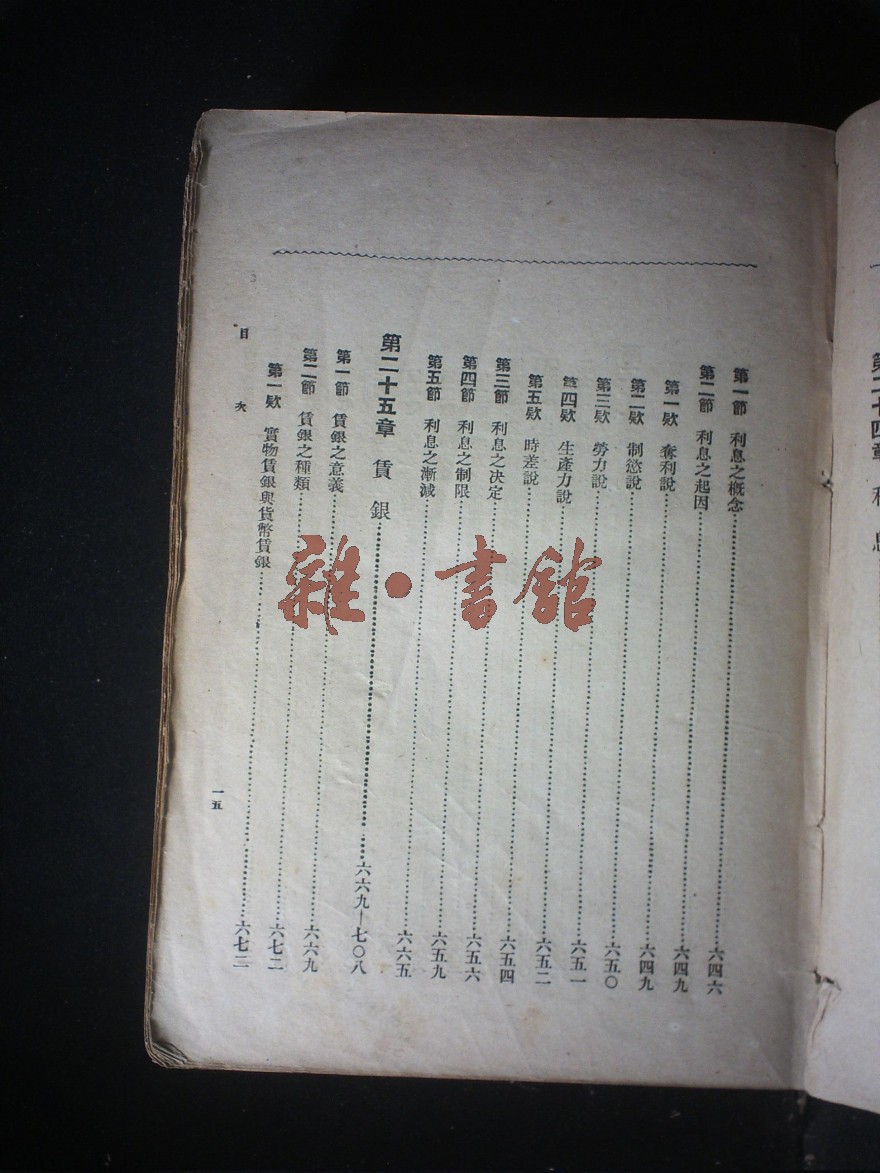 第二十四章　利　息
第一節　利息之概念……六四六
第二節　利息之起因……六四九
第一欵　奪利說……六四九
第二欵　制慾說……六五〇
第三欵　勞力說……六五一
第四欵　生產力說……六五二
第五欵　時差說……六五四
第三節　利息之決定……六五六
第四節　利息之制限……六五九
第五節　利息之漸減……六六五
第二十五章　賃　銀……六六九—七〇八
第一節　賃銀之意義……六六九
第二節　賃銀之種類……六七二
第一欵　實物賃銀與貨幣賃銀……六七二
目　次
一五
雜·書館